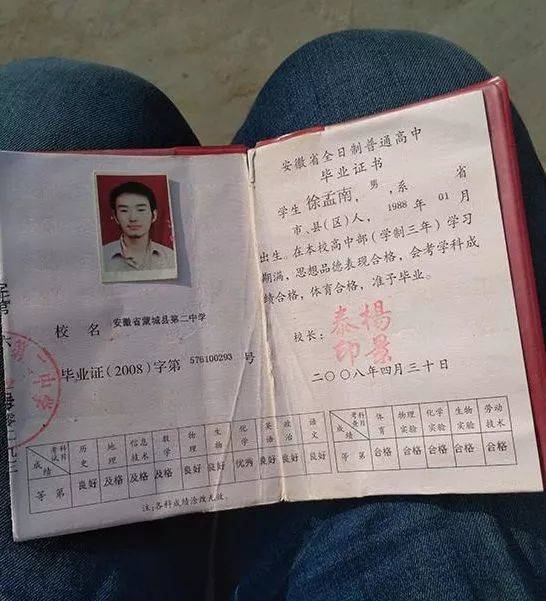 校 名 安徽省蒙城县第二中学
毕业证(2008)字第 576100293 号
考试科目 成绩 历史 地理 信息技术 数学 物理 生物 化学 英语 政治 语文
等 第 良好 及格 及格 及格 良好 良好 优秀 良好 良好 良好
注:各科成绩涂改无效。
安徽省全日制普通高中
毕业证书
学生 徐孟南, 男, 系 省
市、县(区)人, 1988 年 01 月
出生。在本校高中部(学制三年)学习
期满, 思想品德表现合格, 会考学科成
绩合格, 体育合格, 准予毕业。
校长: 楊景泰印
二〇〇八年四月三十日
考查科目 成绩 体育 物理实验 化学实验 生物实验 劳动技术
等 第 合格 合格 合格 合格 合格